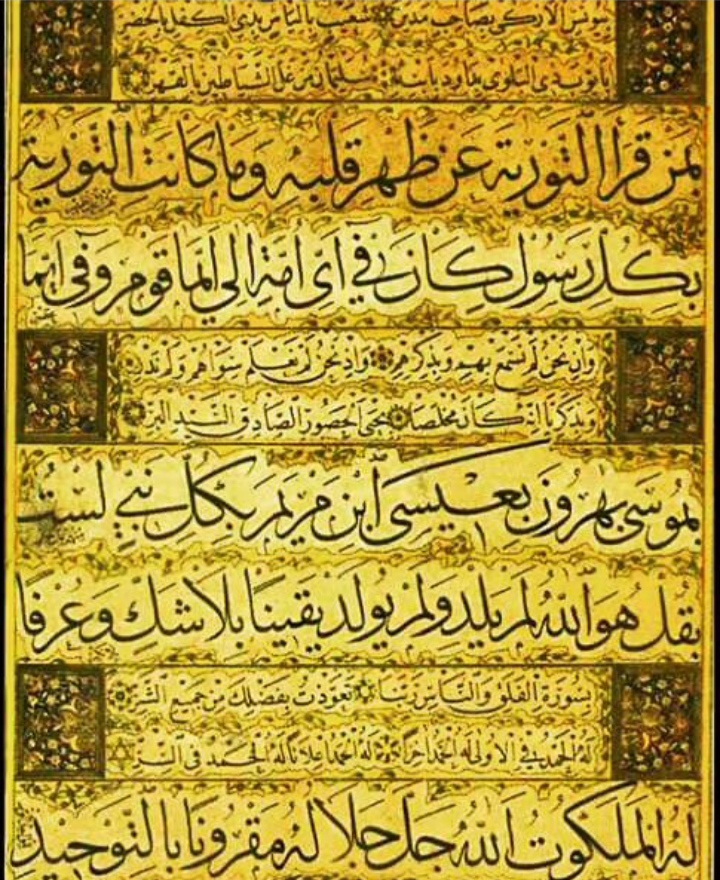 بيونس الازكى بصاحب مدين شعيب بالناس بذى الكفل بالخضر
بايوب ذى البلوى بداود بابنه سليمان من على الشياطين بالقهر
بمن قرأ التورية عن ظهر قلبه وما كانت التورية
بكل رسول كان في اى امة الى ايما قوم وفى ايما
وان نحن لم نسمع بهم وبذكرهم وان نحن لم نعلم سواهم ولم ندر
وبذكريا انه كان مخلصا بيحيى الحصور الصادق السيد البر
بموسى بهرون بعيسى ابن مريم بكل نبي لست
بقل هو الله لم يلد ولم يولد يقينا بلا شك وعرفا
بسورة الفلق والناس ربنا تعوذت بفضلك من جميع الشر
له الحمد في الاولى له الحمد اخرا له الحمد اعلانا له الحمد في السر
له الملكوت الله جل جلاله مقرونا بالتوحيد